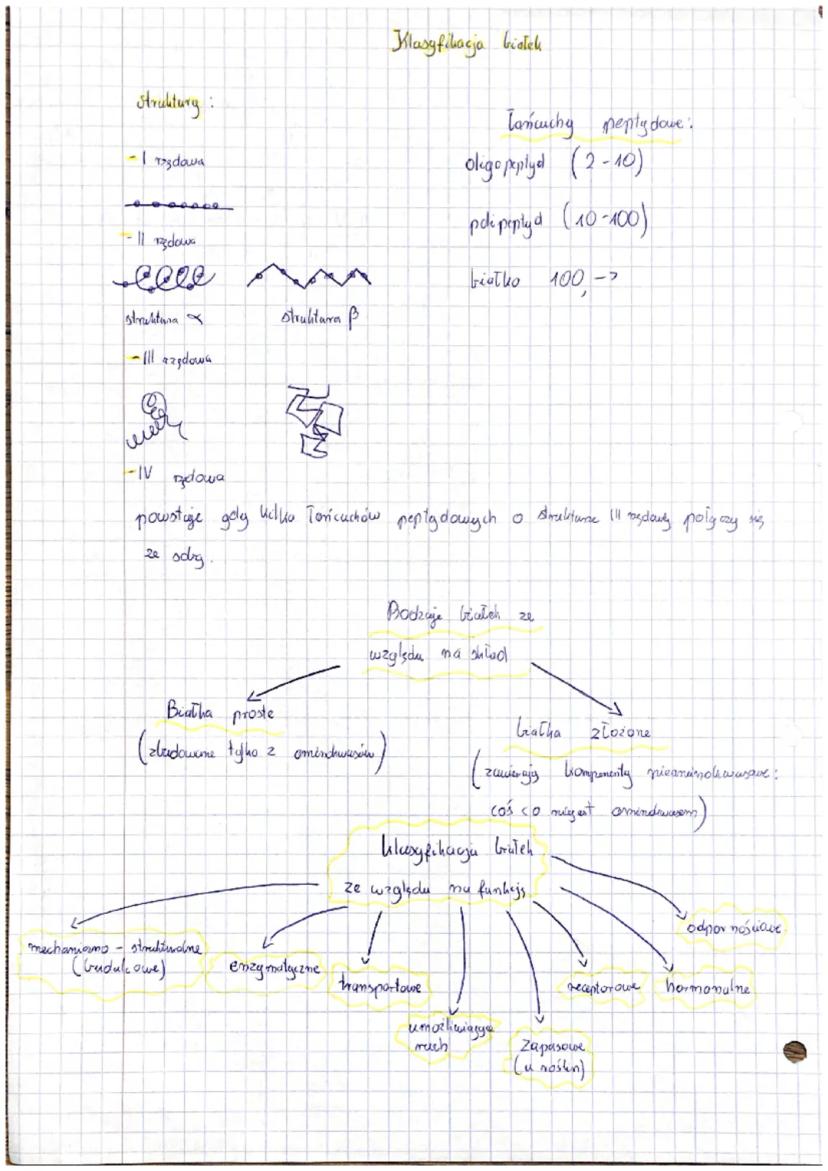 Klasyfikacja białek
struktury:
- I rzędowa
- II rzędowa
struktura α
struktura β
- III rzędowa
- IV rzędowa
powstaje gdy kilka łańcuchów peptydowych o strukturze III rzędowej połączy się
ze sobą.
Łańcuchy peptydowe:
oligopeptyd (2-10)
polipeptyd (10-100)
białko 100, ->
Rodzaje białek ze
względu na skład
Białka proste
(zbudowane tylko z aminokwasów)
białka złożone
(zawierają komponenty nieaminokwasowe:
coś co nie jest aminokwasem)
klasyfikacja białek
ze względu na funkcję
mechaniczno - strukturalne
(budulcowe)
enzymatyczne
transportowe
umożliwiające
ruch
zapasowe
(u roślin)
receptorowe
hormonalne
odpornościowe